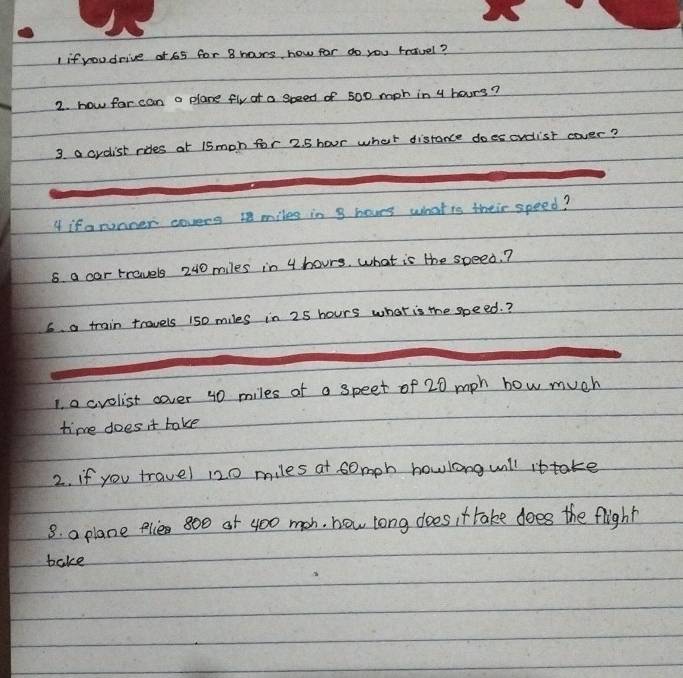 1 if you drive at 65 for 8 hours, how far do you travel?
2. how far can a plane fly at a speed of 500 mph in 4 hours?
3. a cyclist rides at 15 mph for 2.5 hour what distance does cyclist cover?
4 if a runner covers 18 miles in 3 hours what is their speed?
5. a car travels 240 miles in 4 hours. what is the speed.?
6. a train travels 150 miles in 25 hours what is the speed.?
1. a cyclist cover 40 miles at a speet of 20 mph how much
time does it take
2. if you travel 120 miles at 60mph how long will it take
3. a plane flies 800 at 400 mph. how long does it take does the flight
bake